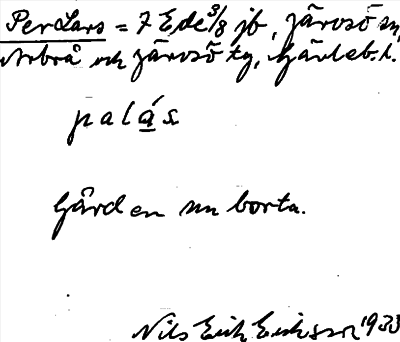 PerLars = 7 E de 3/8 jb, Järvsö sn,
Arbrå och Järvsö tg, Gävleb. l.
palás
Gården nu borta.
Nils Erik Eriksson 1933